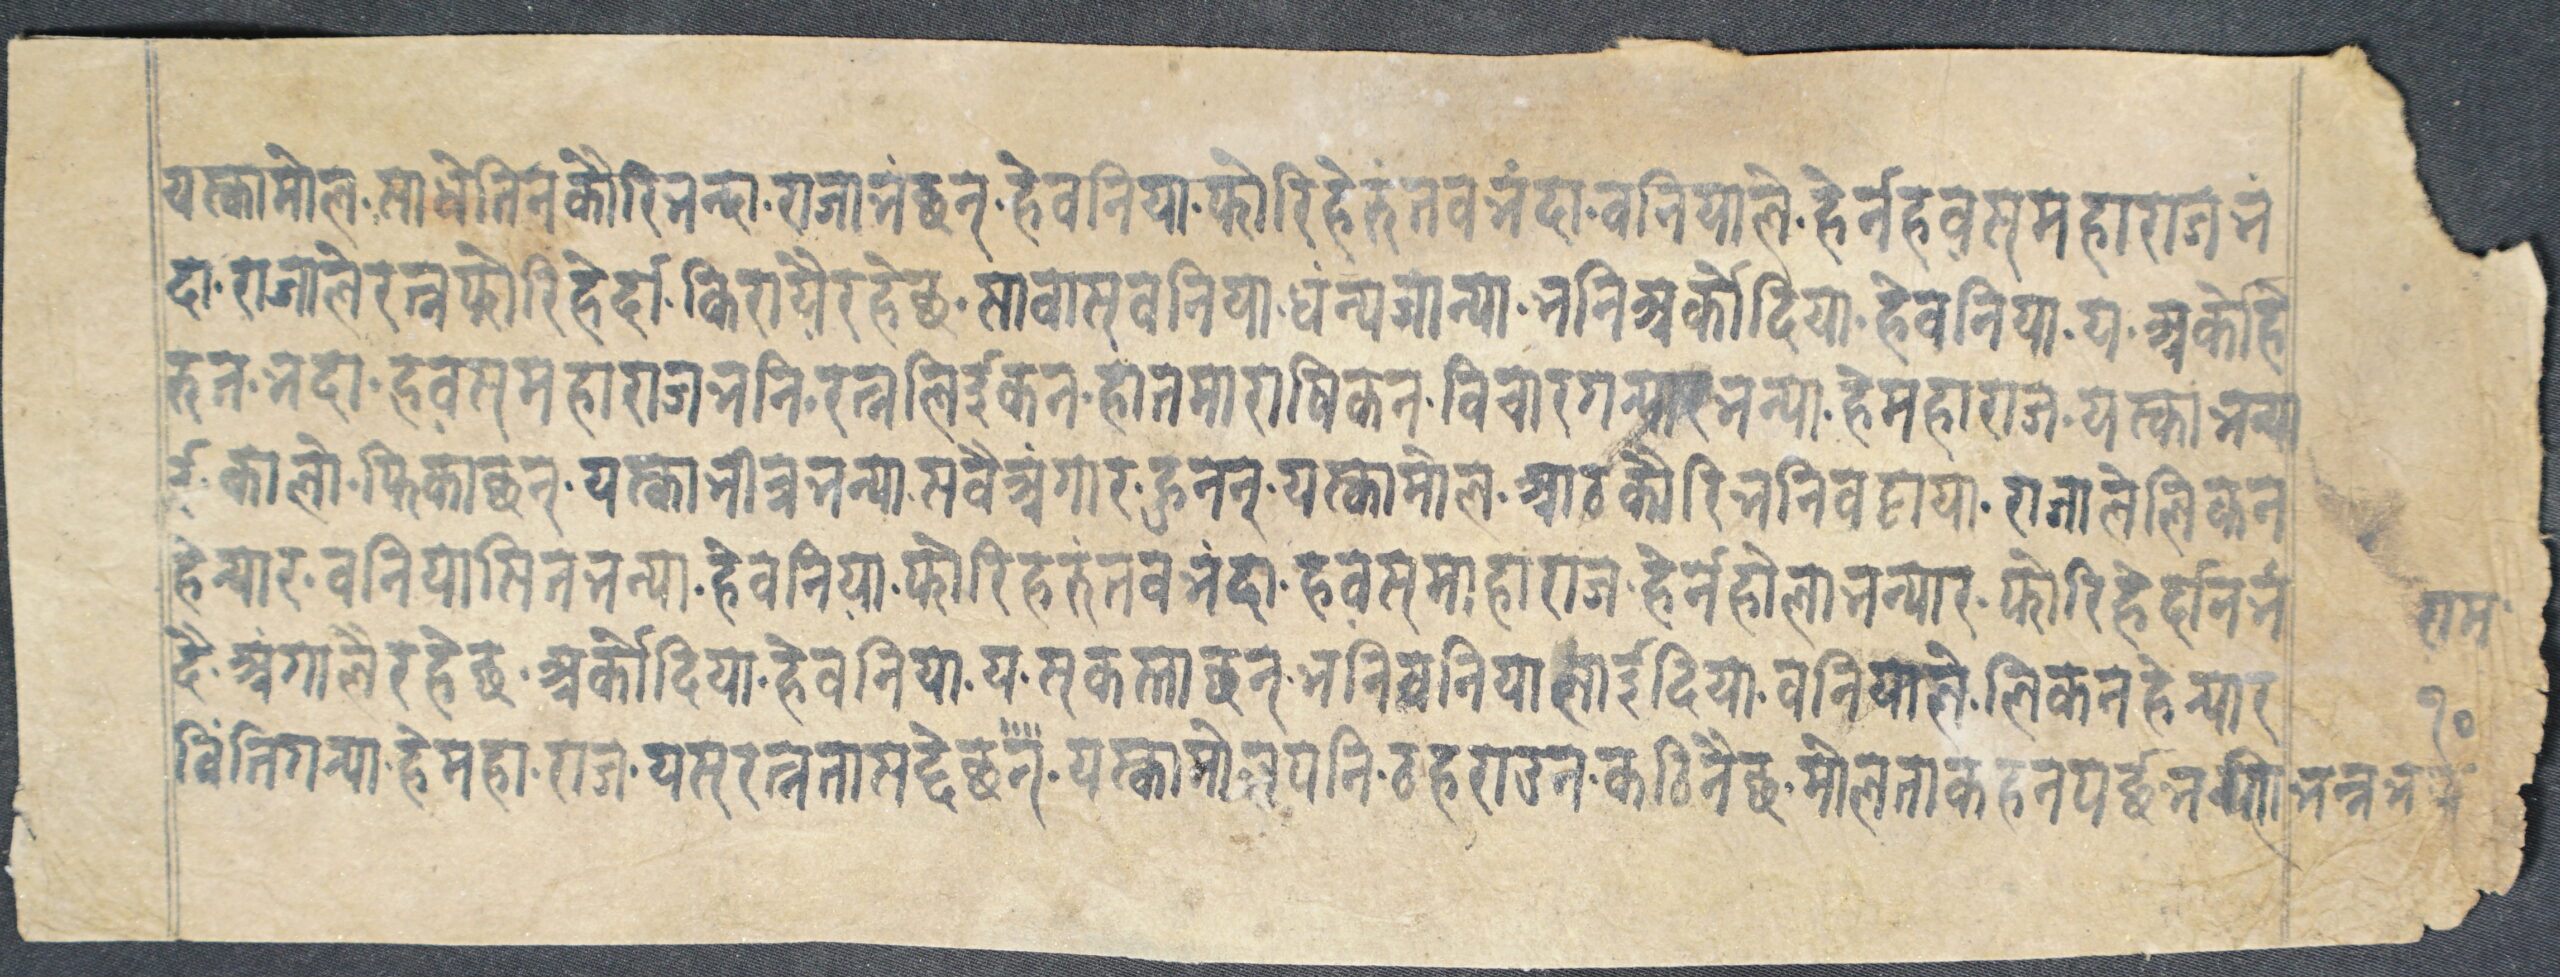 यस्कामोल. साधेतिन कौरि भन्दा. राजा भंछन्. हे वनिया. फोरि हेरुं त व भंदा. वनियाले. हेर्न हवस् महाराज भं
दा. राजाले रत्न फोरि हेर्दा. किरा पैर हेछ. सावास् वनिया. धंन्य जान्या. भनि अर्को दिया. हे वनिया. य. अको हे
रुन. भदा. हवस् महाराज भनि. रत्न लिईकन. हातमा राषिकन. विचार गन्यार भन्या. हे महाराज. यस्का भन्या
ई कालो. फिका छन्. यस्का भीत्र भन्या सवै अंगार. हुनन्. यस्कामोल. आठ कौरि भनि वटाया. राजाले लिकन
हेन्यार. वनिया सित भन्या. हे वनिया. फोरि हरुं त व भंदा. हवस् माहाराज. हेर्न होला भन्यार. फोरि हेर्दा न भं
दै. अंगालै रहेछ. अर्को दिया. हे वनिया. य. स् कस्ता छन्. भनि वनिया लाई दिया. वनियाले. लिकन हेन्यार
विंति गन्या. हे महा. राज. यस् रत्न ता सद्दे छन्. यस्का मोल् पनि. ठहराउन. कठिनै छ. मोल ता कहन पर्छ भ
राम
१०